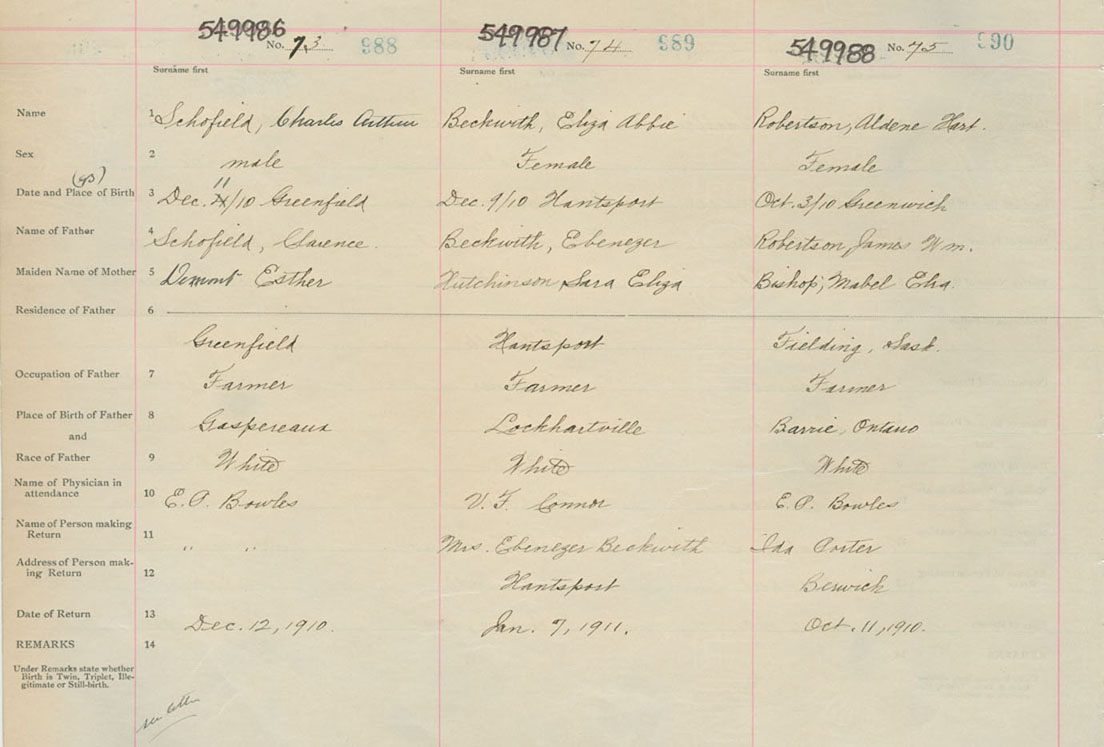 549986 No. 73 988 549987 No. 74 989 549988 No. 75 990
Surname first Surname first Surname first
Name 1 Schofield, Charles Arthur Beckwith, Eliza Abbie Robertson, Aldene Hart.
Sex 2 male Female Female
Date and Place of Birth 3 Dec. 11/10 Greenfield Dec. 9/10 Hantsport Oct. 3/10 Greenwich
Name of Father 4 Schofield, Clarence. Beckwith, Ebenezer Robertson, James Wm.
Maiden Name of Mother 5 Demont Esther Hutchinson Sara Eliza Bishop, Mabel
Residence of Father 6
Greenfield Hantsport Fielding, Sask.
Occupation of Father 7 Farmer Farmer Farmer
Place of Birth of Father 8 Gaspereaux Lockhartville Barrie, Ontario
and
Race of Father 9 White White White
Name of Physician in
attendance 10 E. P. Bowles V. F. Connor E. P. Bowles
Name of Person making
Return 11 " " Mrs. Ebenezer Beckwith Ida Porter
Address of Person mak-
ing Return 12 Hantsport Berwick
Date of Return 13 Dec. 12, 1910. Jan. 7, 1911. Oct. 11, 1910.
REMARKS 14
Under Remarks state whether
Birth is Twin, Triplet, Ille-
gitimate or Still-birth.